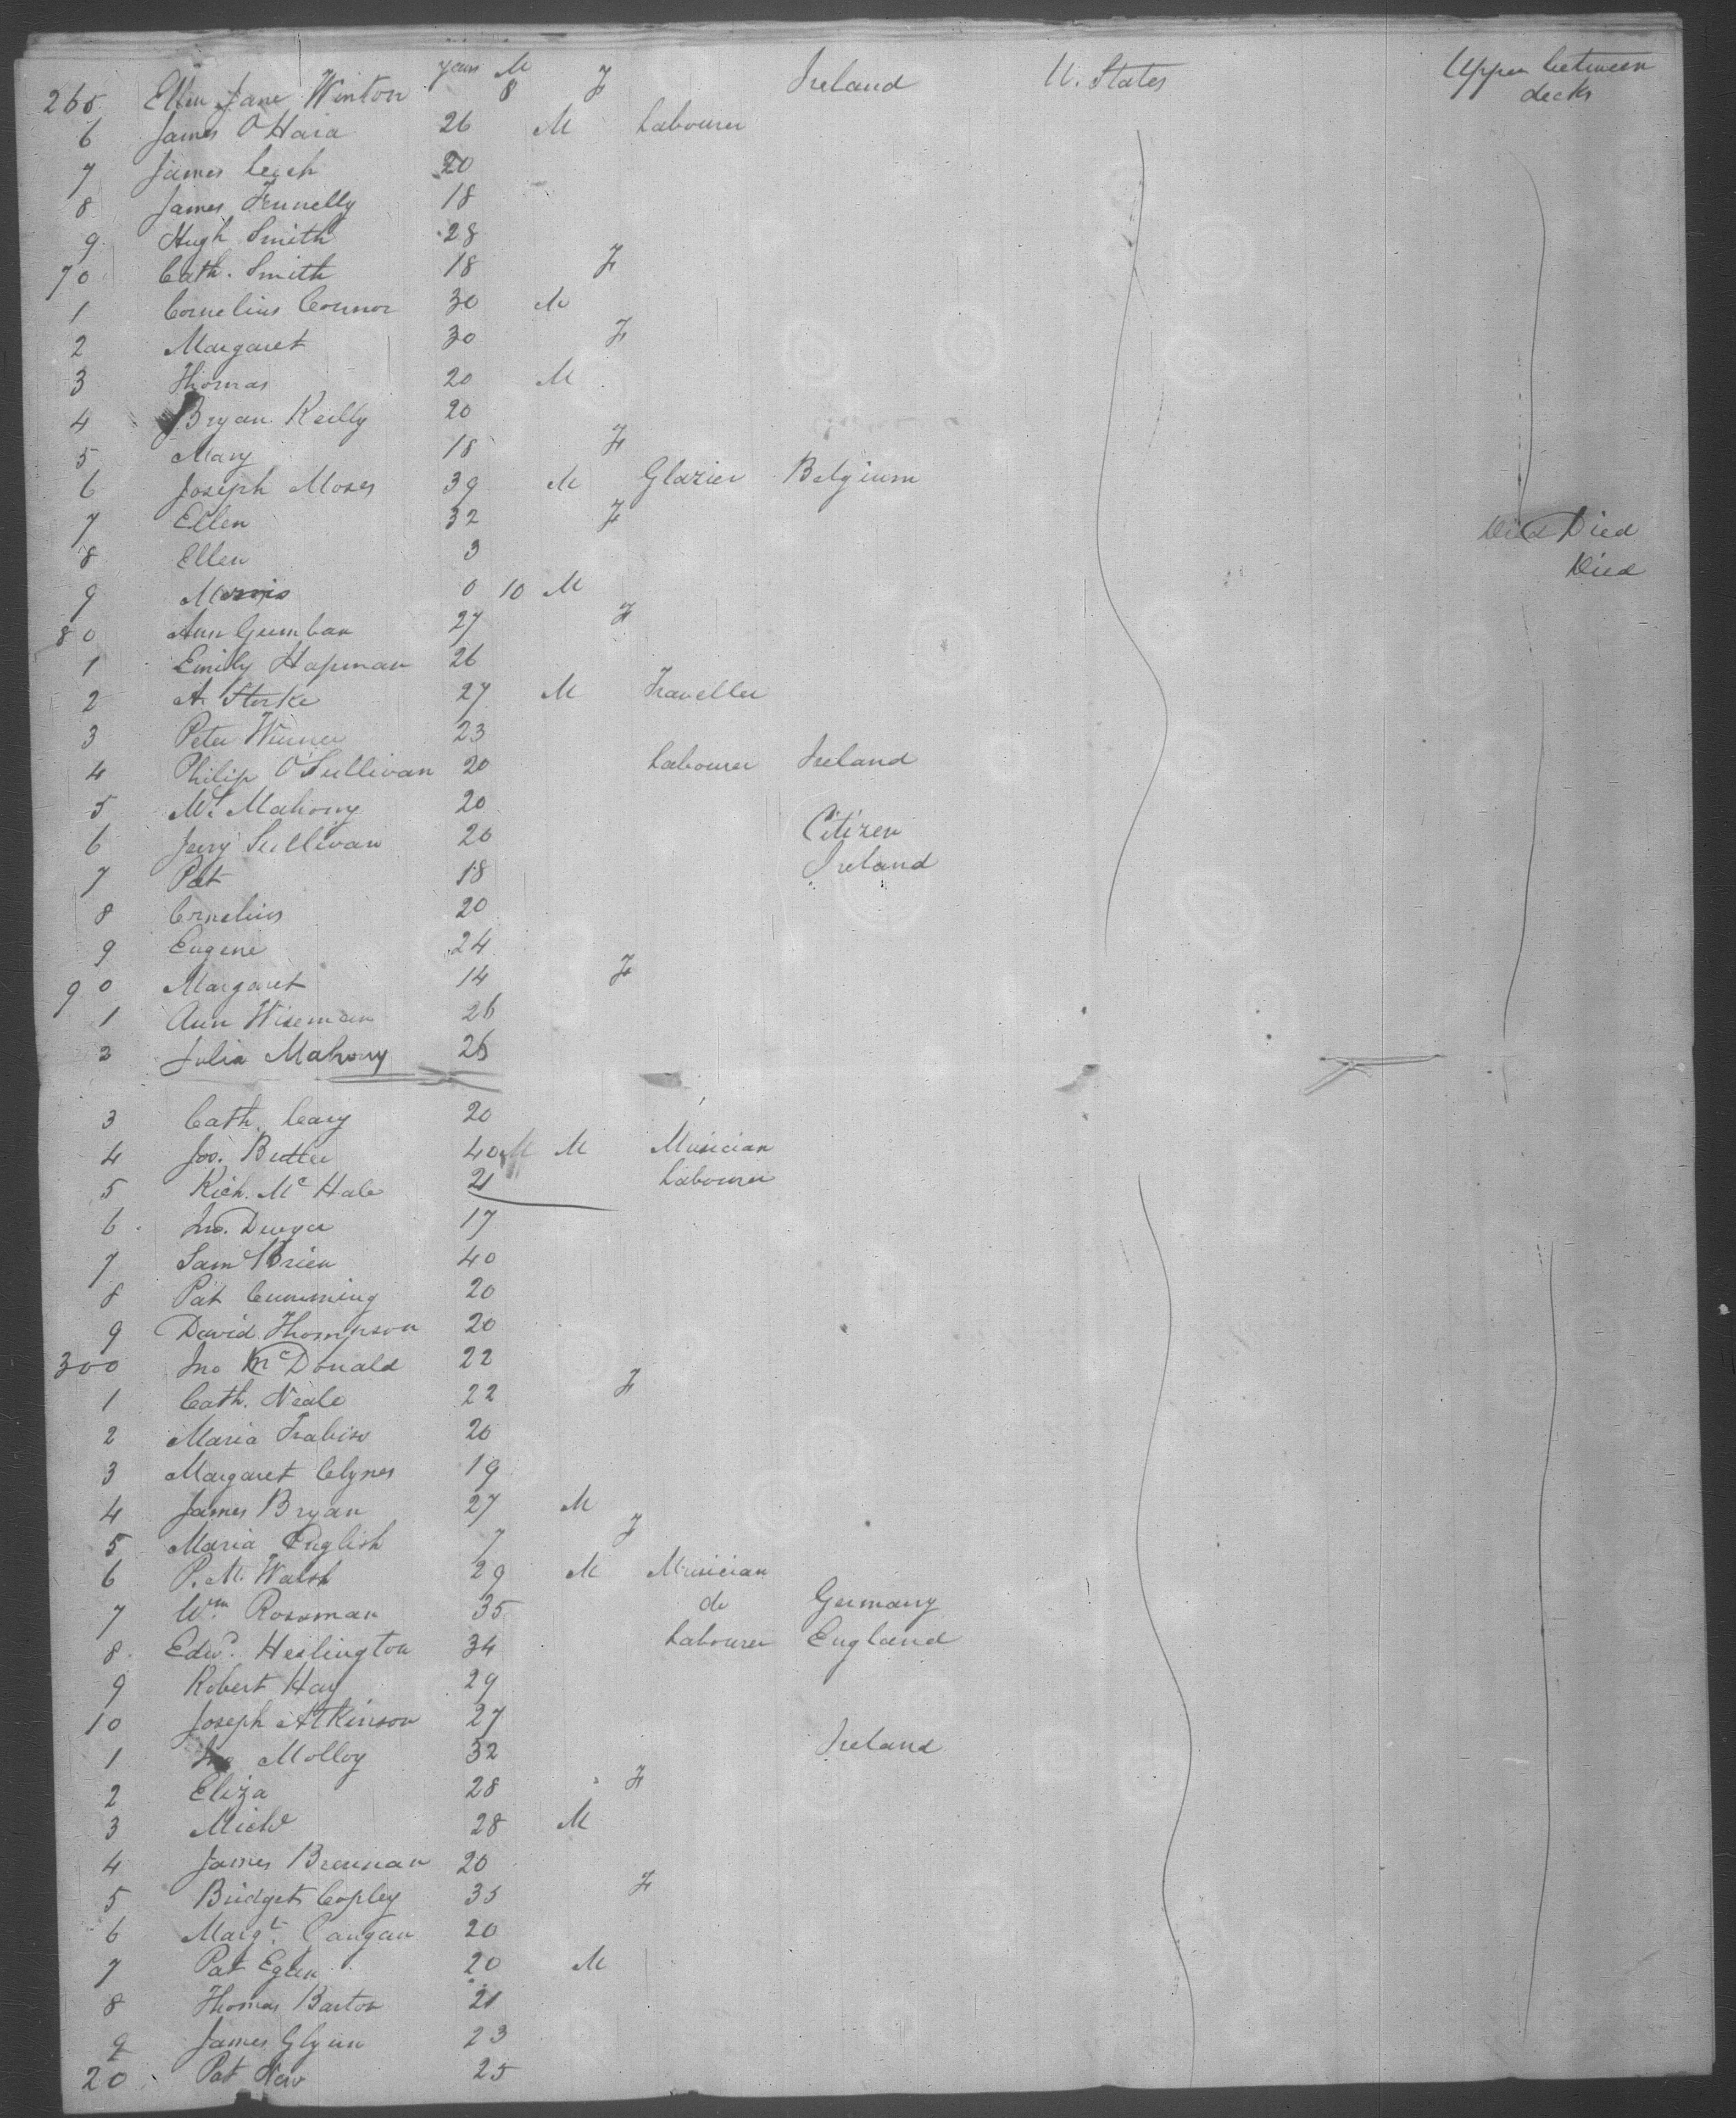 years M
265 Ellen Jane Winton 8 F Ireland U. States Upper between decks
6 James O'Hara 26 M Labourer
7 James Leech 20
8 James Fennelly 18
9 Hugh Smith 28
70 Cath. Smith 18 F
1 Cornelius Connor 30 M
2 Margaret 30 F
3 Thomas 20 M
4 Bryan Reilly 20
5 Mary 18 F
6 Joseph Moses 39 M Glazier Belgium
7 Ellen 32 F Died Died
8 Ellen 3 Died
9 Morris 0 10 M
80 Ann Gumban 27 F
1 Emily Hapman 26
2 A. Storke 27 M Traveller
3 Peter 23
4 Philip O'Sullivan 20 Labourer Ireland
5 Mahony 20
6 Jerry Sullivan 20 Citizen
7 Pat 18 Ireland
8 Cornelius 20
9 Eugene 24
90 Margaret 14 F
1 Ann Wiseman 26
2 Julia Mahony 26
3 Cath. Cary 20
4 Jos. Butler 40 M M Musician
5 Rich. McHale 21 Labourer
6 Jno. Dwyer 17
7 Saml Brien 40
8 Pat Cumming 20
9 David Thompson 20
300 Jno McDonald 22
1 Cath. Neale 22 F
2 Maria 20
3 Margaret Clynes 19
4 James Bryan 27 M
5 Maria English 7 F
6 P. M. Walsh 29 M Musician
7 Wm. Rossman 35 do Germany
8 Edwd. Heslington 34 Labourer England
9 Robert Hay 29
10 Joseph Atkinson 27
1 Jno Molloy 32 Ireland
2 Eliza 28 F
3 Michl 28 M
4 James Brennan 20
5 Bridget Copley 35 F
6 Margt. 20
7 Pat Egan 20 M
8 Thomas Barton 21
9 James Glynn 23
20 Pat 25